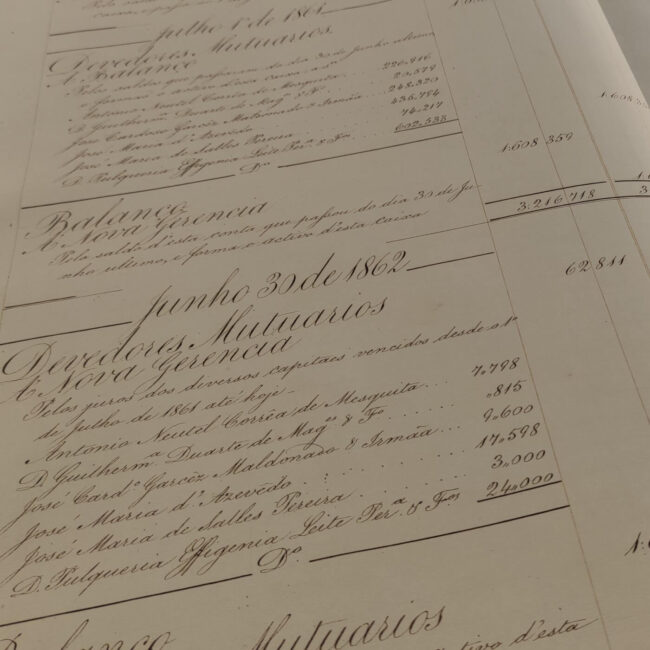 Julho 1º de 1861
Devedores Mutuarios
A Balanço
Pelos saldos que passaram do dia 30 de Junho ultimo
e formam o activo d'esta caixa
Antonio Neutel Corrêa de Mesquita 220,916
D. Guilhermª Duarte de Magᵉˢ & Fº 20,579
José Cardoso Garcêz Maldonado & Irmãa 248,320
José Maria d'Azevêdo 435,784
José Maria de Salles Pereira 74,217
D. Pulqueria Effigenia Leite Perª & Fºˢ 602,538
Dº
1:608,359
Balanço
A Nova Gerencia
Pelo saldo d'esta conta que passou do dia 30 de Ju-
nho ultimo, e forma o activo d'esta caixa
3:216,718
Junho 30 de 1862
62,811
Devedores Mutuarios
A Nova Gerencia
Pelos juros dos diversos capitaes vencidos desde o 1º
de Julho de 1861 até hoje
Antonio Neutel Corrêa de Mesquita 7,,798
D. Guilhermª Duarte de Magᵉˢ & Fº ,,815
José Cardº Garcêz Maldonado & Irmãa 9,,600
José Maria d'Azevêdo 17,,598
José Maria de Salles Pereira 3,,000
D. Pulqueria Effigenia Leite Perª & Fºˢ 24,,000
Dº
Balanço Mutuarios
activo d'esta